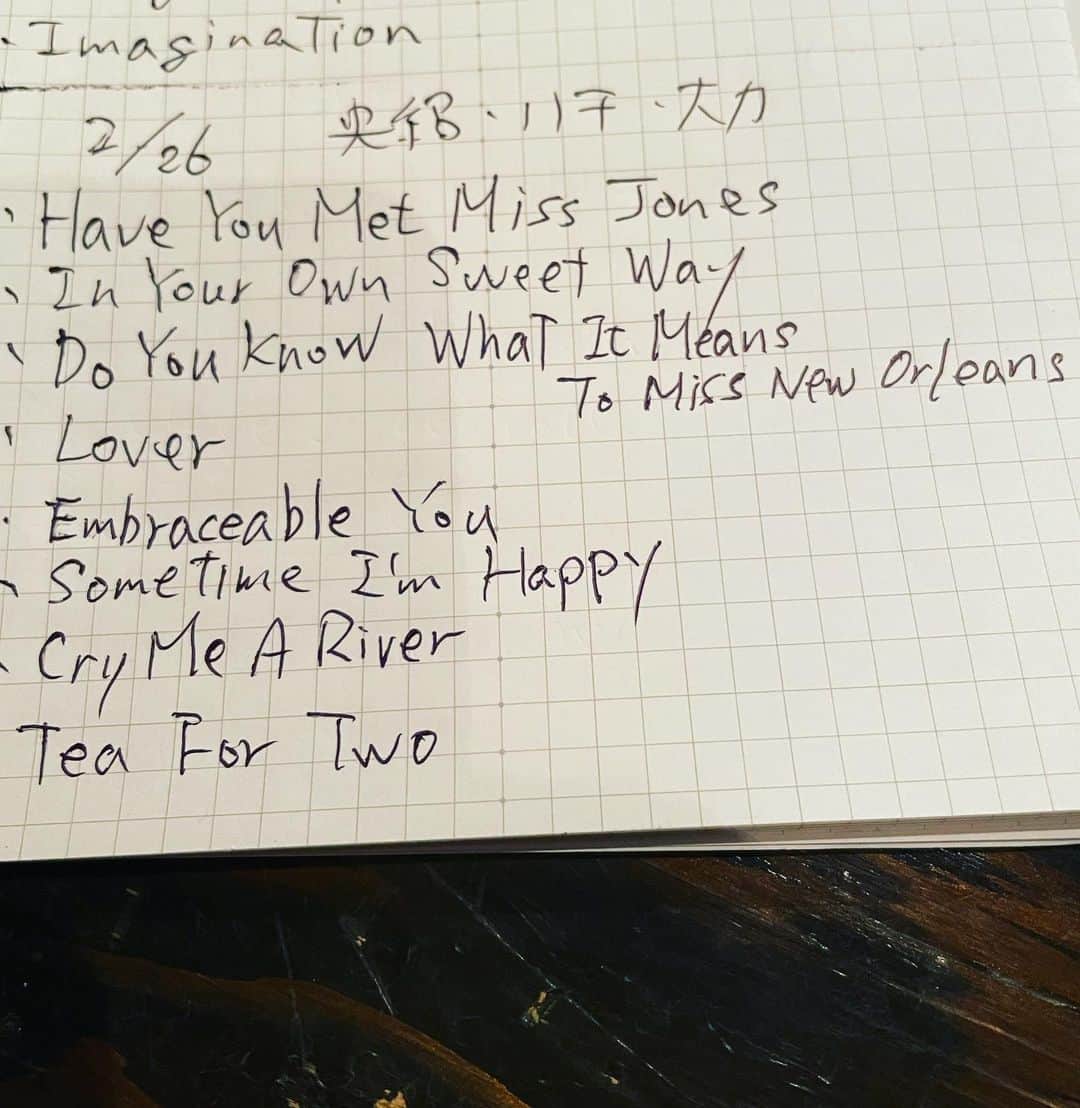 · Imagination
2/26 央紹·川干·大力
· Have You Met Miss Jones
· In Your Own Sweet Way
· Do You Know What It Means
To Miss New Orleans
· Lover
· Embraceable You
· Sometime I'm Happy
· Cry Me A River
Tea For Two